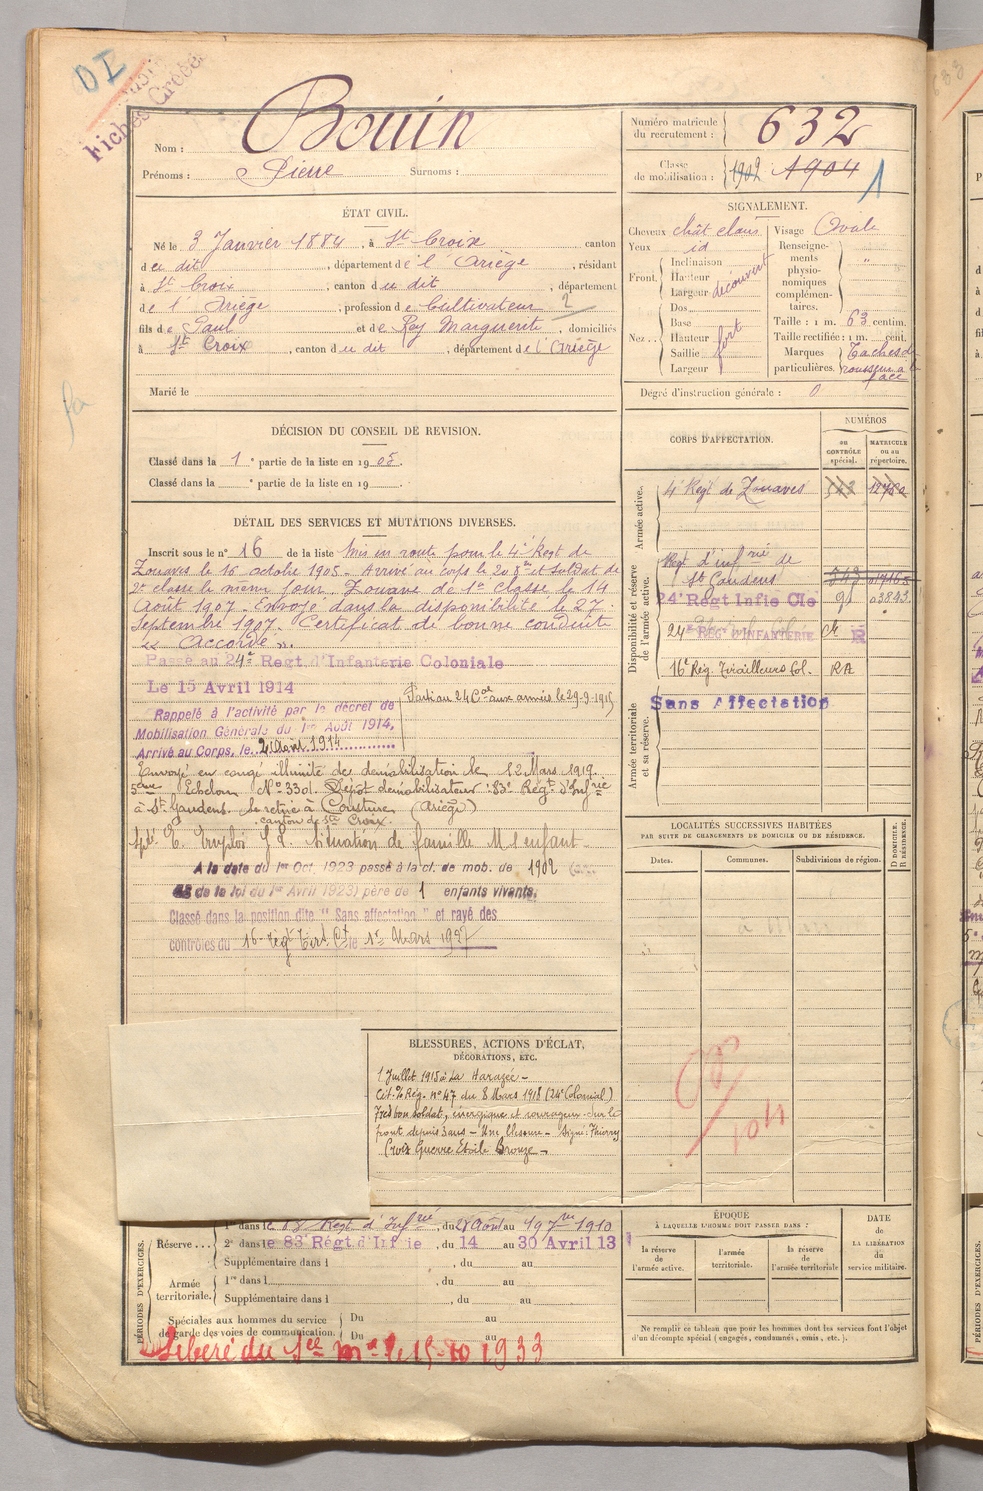 DI
Fiches
Nom : Bouin
Prénoms : Pierre Surnoms :
Numéro matricule du recrutement : 632
Classe de mobilisation : 1902 1904 1
ÉTAT CIVIL.
Né le 3 Janvier 1884, à St Croix canton
du dit, département de l'Ariège, résidant
à St Croix, canton du dit, département
de l'Ariège, profession de Cultivateur 2
fils de Paul et de Rey Marguerite, domiciliés
à St Croix, canton du dit, département de l'Ariège
Marié le
SIGNALEMENT.
Cheveux chât clairs
Yeux id
Front. Inclinaison
Hauteur
Largeur découvert
Nez. Dos
Base
Hauteur fort
Saillie
Largeur
Visage Ovale
Renseignements physionomiques complémentaires. "
Taille : 1 m. 63 centim.
Taille rectifiée : 1 m. cent.
Marques particulières. Taches de rousseur a la face
Degré d'instruction générale : 0
DÉCISION DU CONSEIL DE REVISION.
Classé dans la 1e partie de la liste en 1905.
Classé dans la e partie de la liste en 19 .
DÉTAIL DES SERVICES ET MUTATIONS DIVERSES.
Inscrit sous le n° 16 de la liste Mis en route pour le 4e Regt de
Zouaves le 16 octobre 1905. Arrivé au corps le 20 et soldat de
2e classe le même jour. Zouave de 1e classe le 14
Août 1907. Envoyé dans la disponibilité le 27
Septembre 1907. Certificat de bonne conduite
"Accordé".
Passé au 24e Regt d'Infanterie Coloniale
Le 15 Avril 1914
Rappelé à l'activité par le décret de
Mobilisation Générale du 1er Août 1914,
Arrivé au Corps, le 2 Août 1914
Parti au 24 Cal aux armées le 29-9-1915
Envoyé en congé illimité de démobilisation le 12 Mars 1919.
5ème Echelon N° 3301. Dépôt démobilisateur 83e Régt d'Infrie
à St Gaudens. Se retire à Cousture (Ariège)
canton de Ste Croix.
Situation de famille M 1 enfant
A la date du 1er Oct. 1923 passé à la cl. de mob. de 1902
de la loi du 1er Avril 1923) père de 1 enfants vivants.
Classé dans la position dite "Sans affectation" et rayé des
contrôles du 16 Régt Tirrs Ct le 1er Mars 1927
CORPS D'AFFECTATION.
NUMÉROS
au CONTRÔLE spécial.
MATRICULE ou au répertoire.
Armée active.
4e Regt de Zouaves 12760
Disponibilité et réserve de l'armée active.
Regt d'infrie de
St Gaudens
24e Regt Infie Cle 91 03843
24e REGt D'INFANTERIE
16e Rég. Tirailleurs Col. RA
Armée territoriale et sa réserve.
Sans Affectation
LOCALITÉS SUCCESSIVES HABITÉES
PAR SUITE DE CHANGEMENTS DE DOMICILE OU DE RÉSIDENCE.
Dates. Communes. Subdivisions de région.
D DOMICILE. R RÉSIDENCE.
BLESSURES, ACTIONS D'ÉCLAT,
DÉCORATIONS, ETC.
1 Juillet 1915 à La Harazée -
Cit. % Rég. n° 47 du 8 Mars 1918 (24e Colonial)
Très bon soldat, énergique et courageux. Sur le
front depuis 3 ans - Une blessure - Signé : Thierry
Croix Guerre Etoile Bronze -
PÉRIODES D'EXERCICES.
Réserve . . .
1re dans le 83e Regt d'Infrie, du 26 Août au 1910
2e dans le 83e Régt d'Infie, du 14 au 30 Avril 13
Supplémentaire dans l , du au
Armée territoriale.
1re dans l , du au
Supplémentaire dans l , du au
Spéciales aux hommes du service de garde des voies de communication.
Du au
Du au
Libéré du Sce mre le 15-10 1933
ÉPOQUE
À LAQUELLE L'HOMME DOIT PASSER DANS :
la réserve de l'armée active.
l'armée territoriale.
la réserve de l'armée territoriale
DATE DE LA LIBÉRATION du service militaire.
Ne remplir ce tableau que pour les hommes dont les services font l'objet
d'un décompte spécial (engagés, condamnés, omis, etc.).